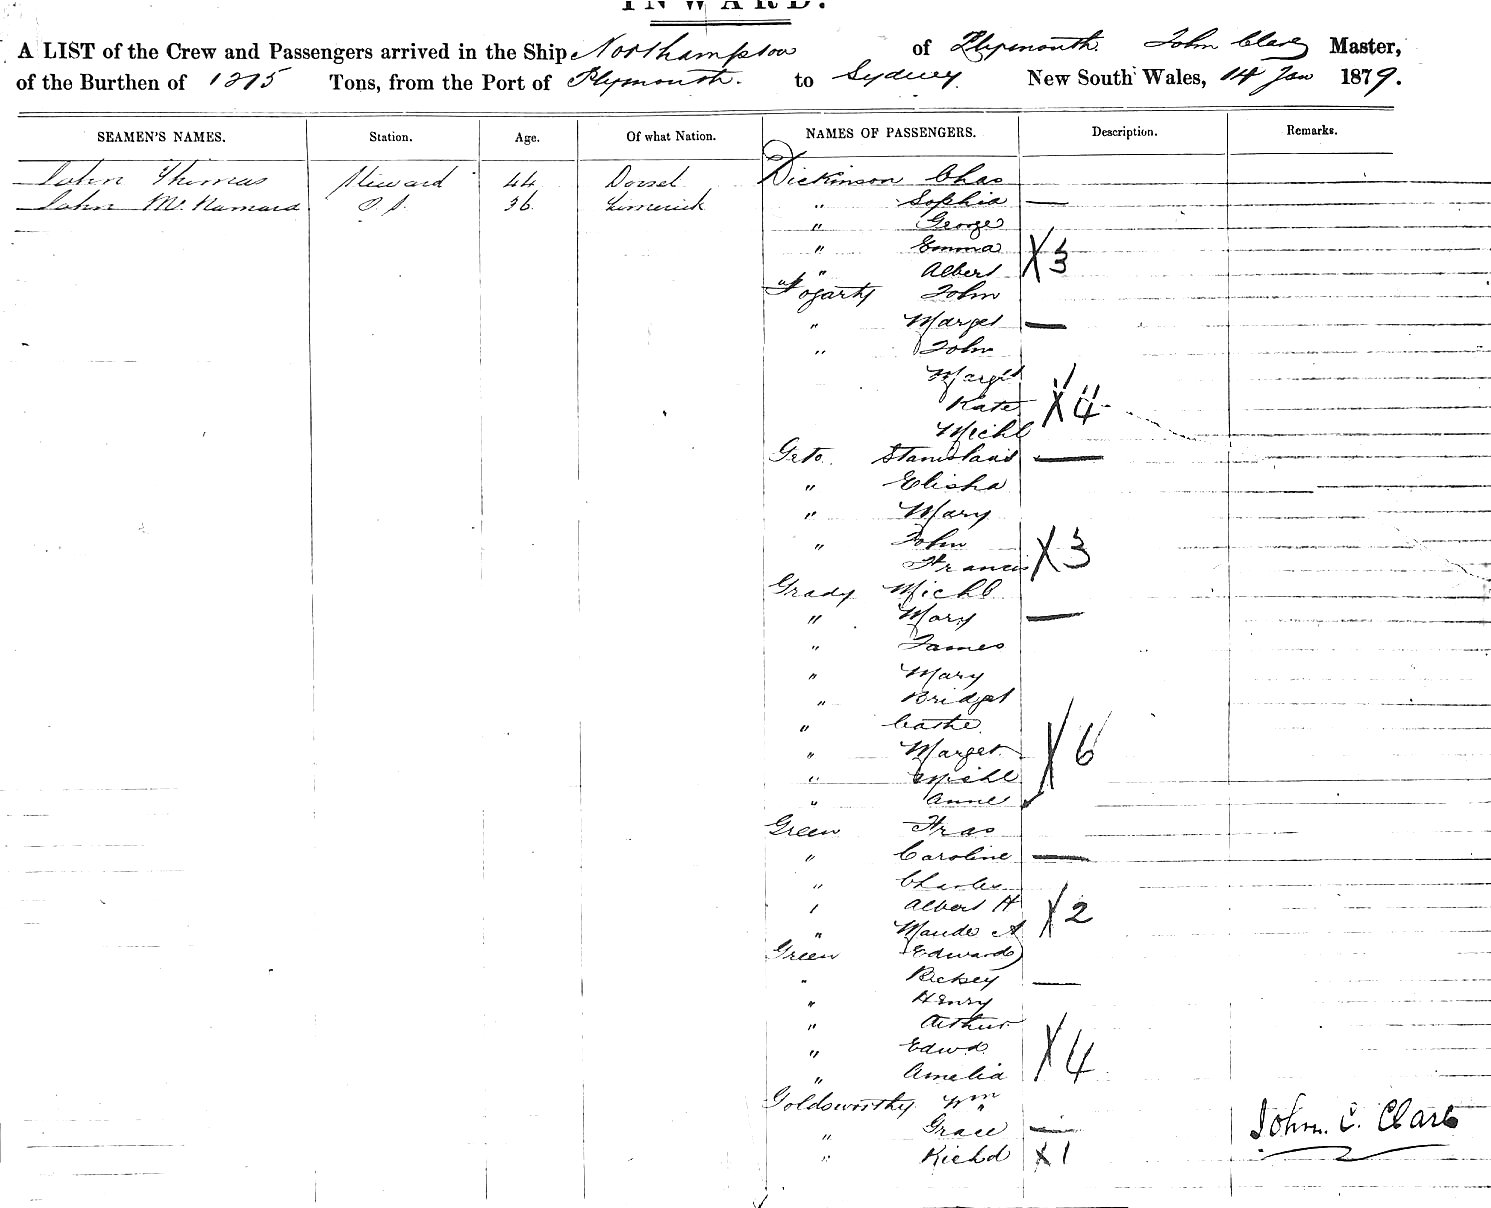 INWARD.
A LIST of the Crew and Passengers arrived in the Ship Northampton of Plymouth John Clark Master,
of the Burthen of 1275 Tons, from the Port of Plymouth. to Sydney. New South Wales, 14 Jan 1879.
SEAMEN'S NAMES. Station. Age. Of what Nation. NAMES OF PASSENGERS. Description. Remarks.
John Thomas Steward 44 Dorset Dickinson Chas
John McNamara O.S. 36 Limerick " Sophia —
" George
" Emma X3
" Albert
Fogarty John
" Marget —
" John
Margt
Kate X4
Michl
Geto. Stanislaus —
" Elisha
" Mary
" John X3
Francis
Grady Michl
" Mary —
" James
" Mary
" Bridget
" Cathe.
" Marget X6
" Michl
" Anne
Green Fras
" Caroline —
" Charles
" Albert H X2
" Maude A
Green Edward
" Betsey —
" Henry
" Arthur
" Edwd. X4
" Amelia
Goldsworthy Wm
" Grace —
John. C. Clark
" Richd X1